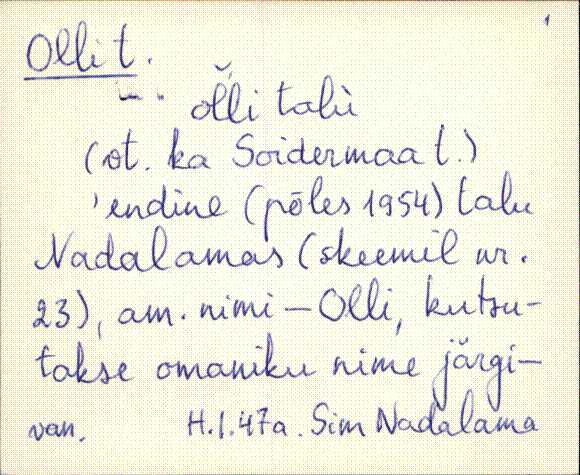 Olli t.
olli talu
(vt. ka Soidermaa t.)
'endine (põles 1954) talu
Nadalamas (skeemil nr.
23), am. nimi – Olli, kutsu-
takse omaniku nime järgi –
van. H.I.47a. Sim Nadalama